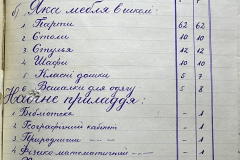 б) Яка мебля в школі:
1. Парти 62 62
2. Столи 10 10
3. Стулья 12 12
4. Шафи 10 10
5. Класні дошки 5 7
6. Вешалки для одягу 5 8
Наочне приладдя:
1. Бібліотека - 1
2. Географічний кабінет - 1
3. Природничий - " - - 1
4. Фізико математичний - " - - 1